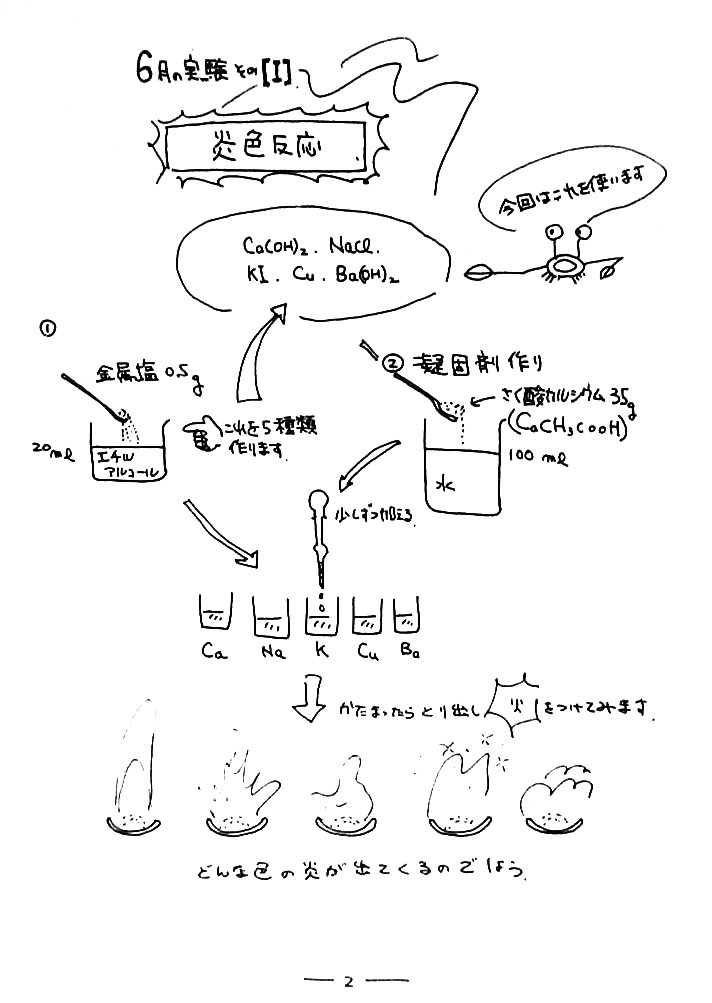 6月の実験その[I]
炎色反応
今回はこれを使います
Ca(OH)₂. NaCl.
KI. Cu. Ba(OH)₂
①
金属塩 0.5g
20ml
エチル
アルコール
これを5種類
作ります.
② 凝固剤作り
さく酸カルシウム 35g
(CaCH₃COOH)
100 ml
水
少しずつ加える.
Ca Na K Cu Ba
かたまったらとり出し 火 をつけてみます.
どんな色の炎が出てくるのでしょう.
— 2 —